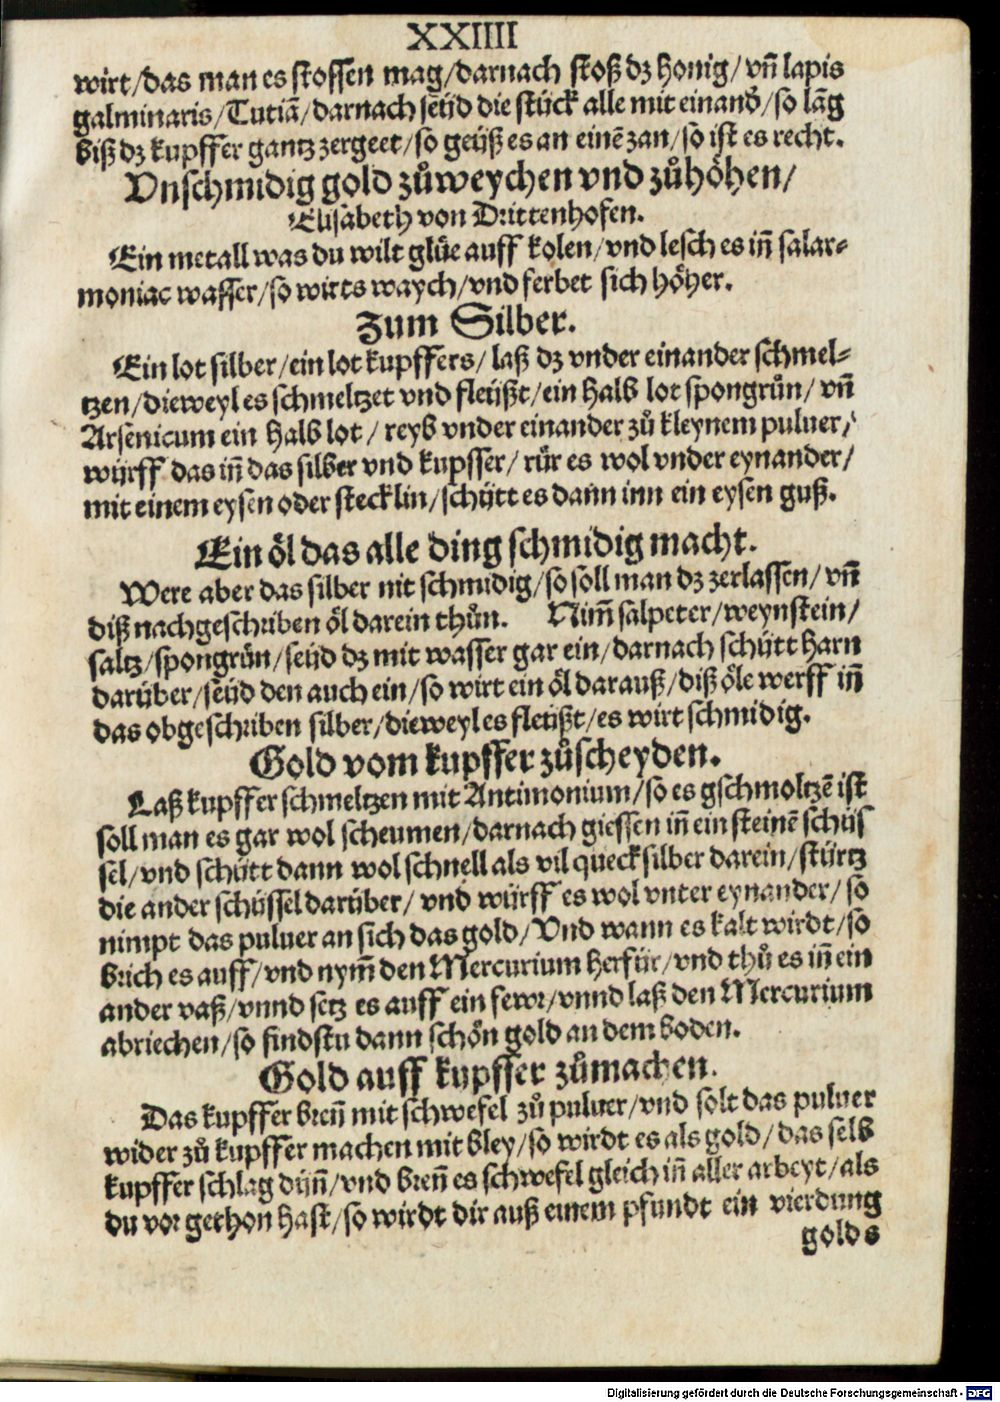 XXIIII
wirt/das man es stossen mag/darnach stoß dz honig/vñ lapis
galminaris/Tutiā/darnach seüd die stück alle mit einand̕/so lāg
biß dz kupffer gantz zergeet/so geüß es an einē zan/so ist es recht.
Vnschmidig gold zůweychen vnd zůhöhen/
Elisabeth von Drittenhofen.
Ein metall was du wilt glüe auff kolen/vnd lesch es iñ salar-
moniac wasser/so wirts waych/vnd ferbet sich höher.
Zum Silber.
Ein lot silber/ein lot kupffers/laß dz vnder einander schmel-
tzen/dieweyl es schmeltzet vnd fleüßt/ein halb lot spongrůn/vñ
Arsenicum ein halb lot/reyb vnder einander zů kleynem puluer/
würff das iñ das silber vnd kupffer/rür es wol vnder eynander/
mit einem eysen oder stecklin/schütt es dann inn ein eysen guß.
Ein öl das alle ding schmidig macht.
Were aber das silber nit schmidig/so soll man dz zerlassen/vñ
diß nachgeschriben öl darein thůn. Nim̃ salpeter/weynstein/
saltz/spongrün/seüd dz mit wasser gar ein/darnach schütt harn
darüber/seüd den auch ein/so wirt ein öl darauß/diß öle werff iñ
das obgeschriben silber/dieweyl es fleüßt/es wirt schmidig.
Gold vom kupffer zůscheyden.
Laß kupffer schmeltzen mit Antimonium/so es gschmoltzē ist
soll man es gar wol scheumen/darnach giessen iñ ein steinē schüs
sel/vnd schütt dann wol schnell als vil quecksilber darein/stürtz
die ander schüssel darüber/vnd würff es wol vnter eynander/so
nimpt das puluer an sich das gold/Vnd wann es kalt wirdt/so
brich es auff/vnd nym̃ den Mercurium herfür/vnd thů es iñ ein
ander vaß/vnnd setz es auff ein fewr/vnnd laß den Mercurium
abriechen/so findstu dann schön gold an dem boden.
Gold auff kupffer zůmachen.
Das kupffer breñ mit schwefel zů puluer/vnd solt das puluer
wider zů kupffer machen mit bley/so wirdt es als gold/das selb
kupffer schlag düñ/vnd breñ es schwefel gleich iñ aller arbeyt/als
du vor gethon hast/so wirdt dir auß einem pfundt ein vierdung
golds
Digitalisierung gefördert durch die Deutsche Forschungsgemeinschaft - DFG